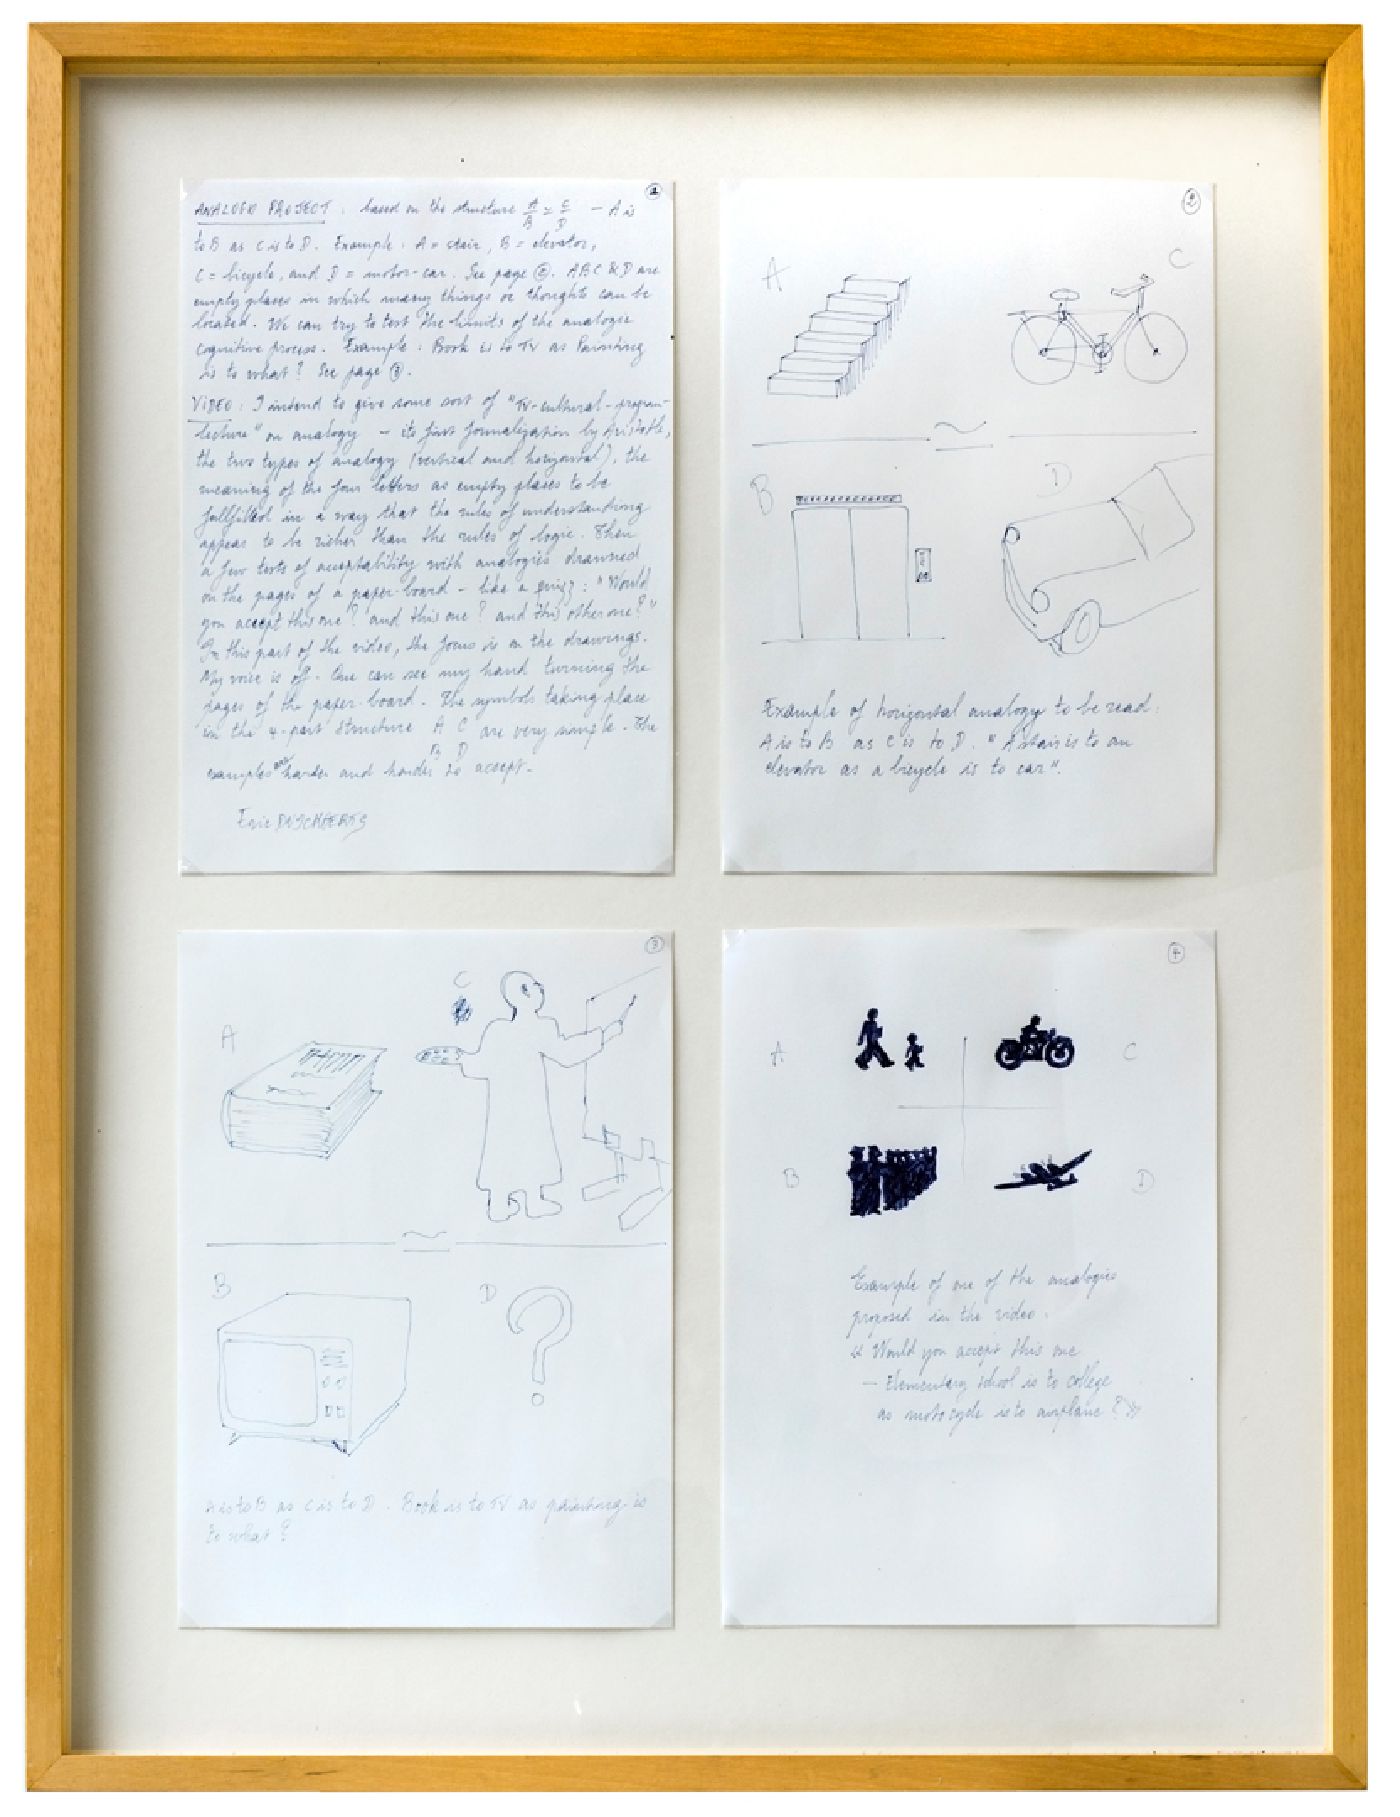 1
ANALOGO PROJECT : based on the structure A/B ≃ C/D — A is
to B as C is to D. Example : A = stair, B = elevator,
C = bicycle, and D = motor-car. See page 2. A B C & D are
empty places in which many things or thoughts can be
located. We can try to test the limits of the analogic
cognitive process. Example : Book is to TV as Painting
is to what ? See page 3.
VIDEO : I intend to give some sort of "TV-cultural-program-
lecture" on analogy — its first formalization by Aristotle,
the two types of analogy (vertical and horizontal), the
meaning of the four letters as empty places to be
fullfilled in a way that the rules of understanding
appear to be richer than the rules of logic. Then
a few tests of acceptability with analogies drawned
on the pages of a paper-board — like a quiz : "Would
you accept this one ? and this one ? and this other one ? "
In this part of the video, the focus is on the drawings.
My voice is off. One can see my hand turning the
pages of the paper-board. The symbols taking place
in the 4-part structure A C are very simple. The
B D
examples are harder and harder to accept.
Eric DUYCKAERTS
2
A
C
≃
B
D
Example of horizontal analogy to be read :
A is to B as C is to D. "A stair is to an
elevator as a bicycle is to car".
3
A
C
≃
B
D
?
A is to B as C is to D. Book is to TV as painting is
to what ?
4
A
C
B
D
Example of one of the analogies
proposed in the video.
« Would you accept this one
— Elementary school is to college
as motocycle is to airplane ? »